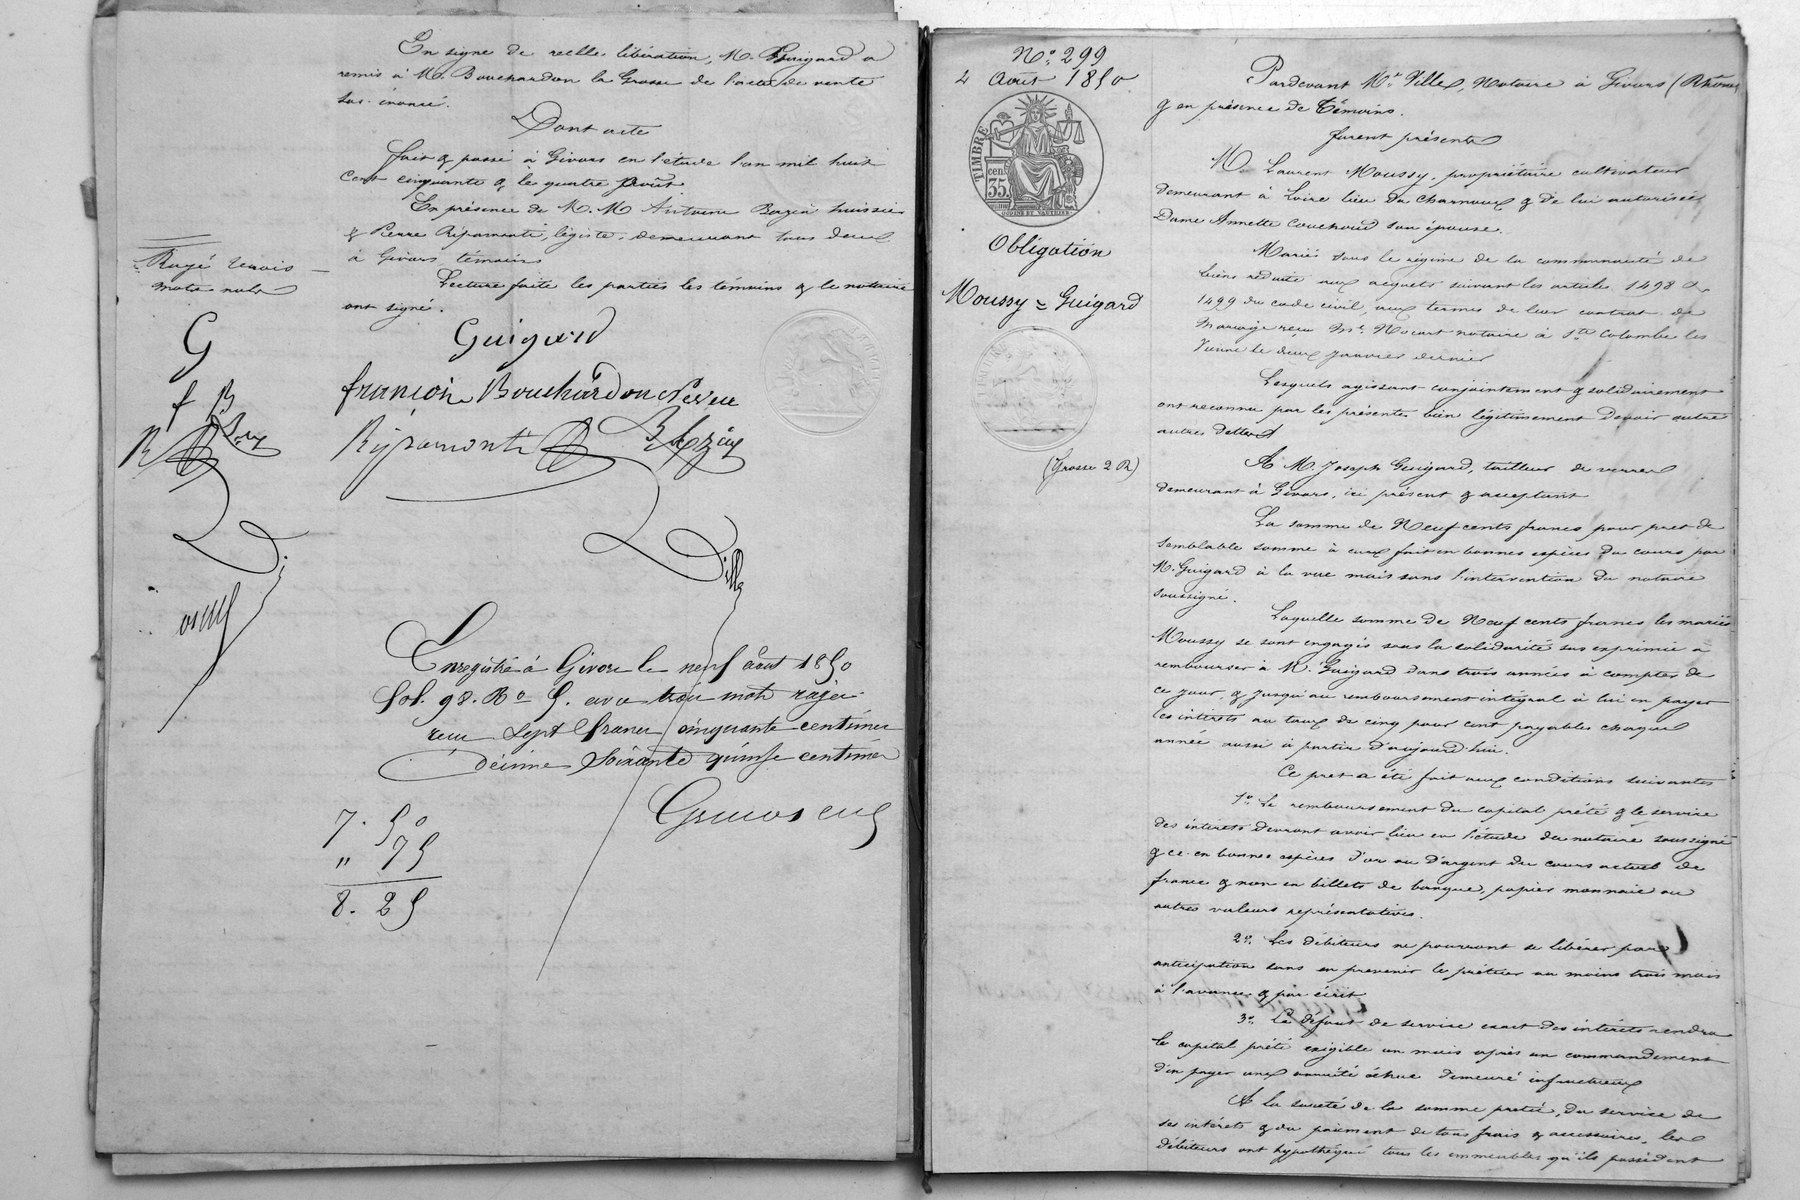 En signe de réelle libération, M. Guigard a
remis à M. Bouchardon la Grosse de l'acte de vente
sus-énoncé.
Dont acte
fait & passé à Givors en l'étude l'an mil huit
cent cinquante & le quatre Août.
En présence de M. M Antoine Bazin huissier
& Pierre Ripamonti, légiste, demeurant tous deux
à Givors, témoins
Lecture faite les parties les témoins & le notaire
ont signé.
Rayé trois
mots nuls
G
f B
R
Guigard
françois Bouchardon Neveu
Ripamonti
Bazin
Ville
Enregistré à Givors le neuf août 1850
fol. 98. Ro 5. avec trois mots rayés
reçu sept francs cinquante centimes
décime soixante quinze centimes
7. 50
" 75
8. 25
No. 299
4 Août 1850
TIMBRE
cen.
35
Obligation
Moussy = Guigard
(Grosse 2 R)
Pardevant Me. Ville, Notaire à Givors (Rhône)
& en présence de Témoins.
furent présents
M. Laurent Moussy, propriétaire cultivateur
demeurant à Loire lieu du Charnoux & de lui autorisée
Dame Annette Couchoud son épouse.
Mariés sous le régime de la communauté de
biens réduite aux acquets suivant les articles 1498 &
1499 du code civil, aux termes de leur contrat de
Mariage reçu Me. Nocart notaire à Ste Colombe les
Vienne le deux janvier dernier
Lesquels agissant conjointement & solidairement
ont reconnu par les présentes bien légitimement devoir outre
autres dettes
A M. Joseph Guigard, tailleur de verres
demeurant à Givors, ici présent & acceptant
La somme de Neuf cents francs pour pret de
semblable somme à eux fait en bonnes espèces du cours par
M. Guigard à la vue mais sans l'intervention du notaire
soussigné.
Laquelle somme de Neuf cents francs les mariés
Moussy se sont engagés sous la solidarité sus exprimée à
rembourser à M. Guigard dans trois années à compter de
ce jour, & jusqu'au remboursement intégral à lui en payer
les intérêts au taux de cinq pour cent payables chaque
année aussi à partir d'aujourd'hui.
Ce pret a été fait aux conditions suivantes
1o. Le remboursement du capital prêté & le service
des intérêts devront avoir lieu en l'étude du notaire soussigné
& ce en bonnes espèces d'or ou d'argent du cours actuel de
france & non en billets de banque, papier monnaie ou
autres valeurs représentatives.
2o. Les débiteurs ne pourront se libérer par
anticipation sans en prevenir le prêteur au moins trois mois
à l'avance & par écrit
3o. Le défaut de service exact des intérêts rendra
le capital prêté exigible un mois après un commandement
d'en payer une annuité échue demeuré infructueux
A la sureté de la somme pretée, du service de
ses intérêts & du paiement de tous frais & accessoires, les
débiteurs ont hypothéqué tous les immeubles qu'ils possèdent